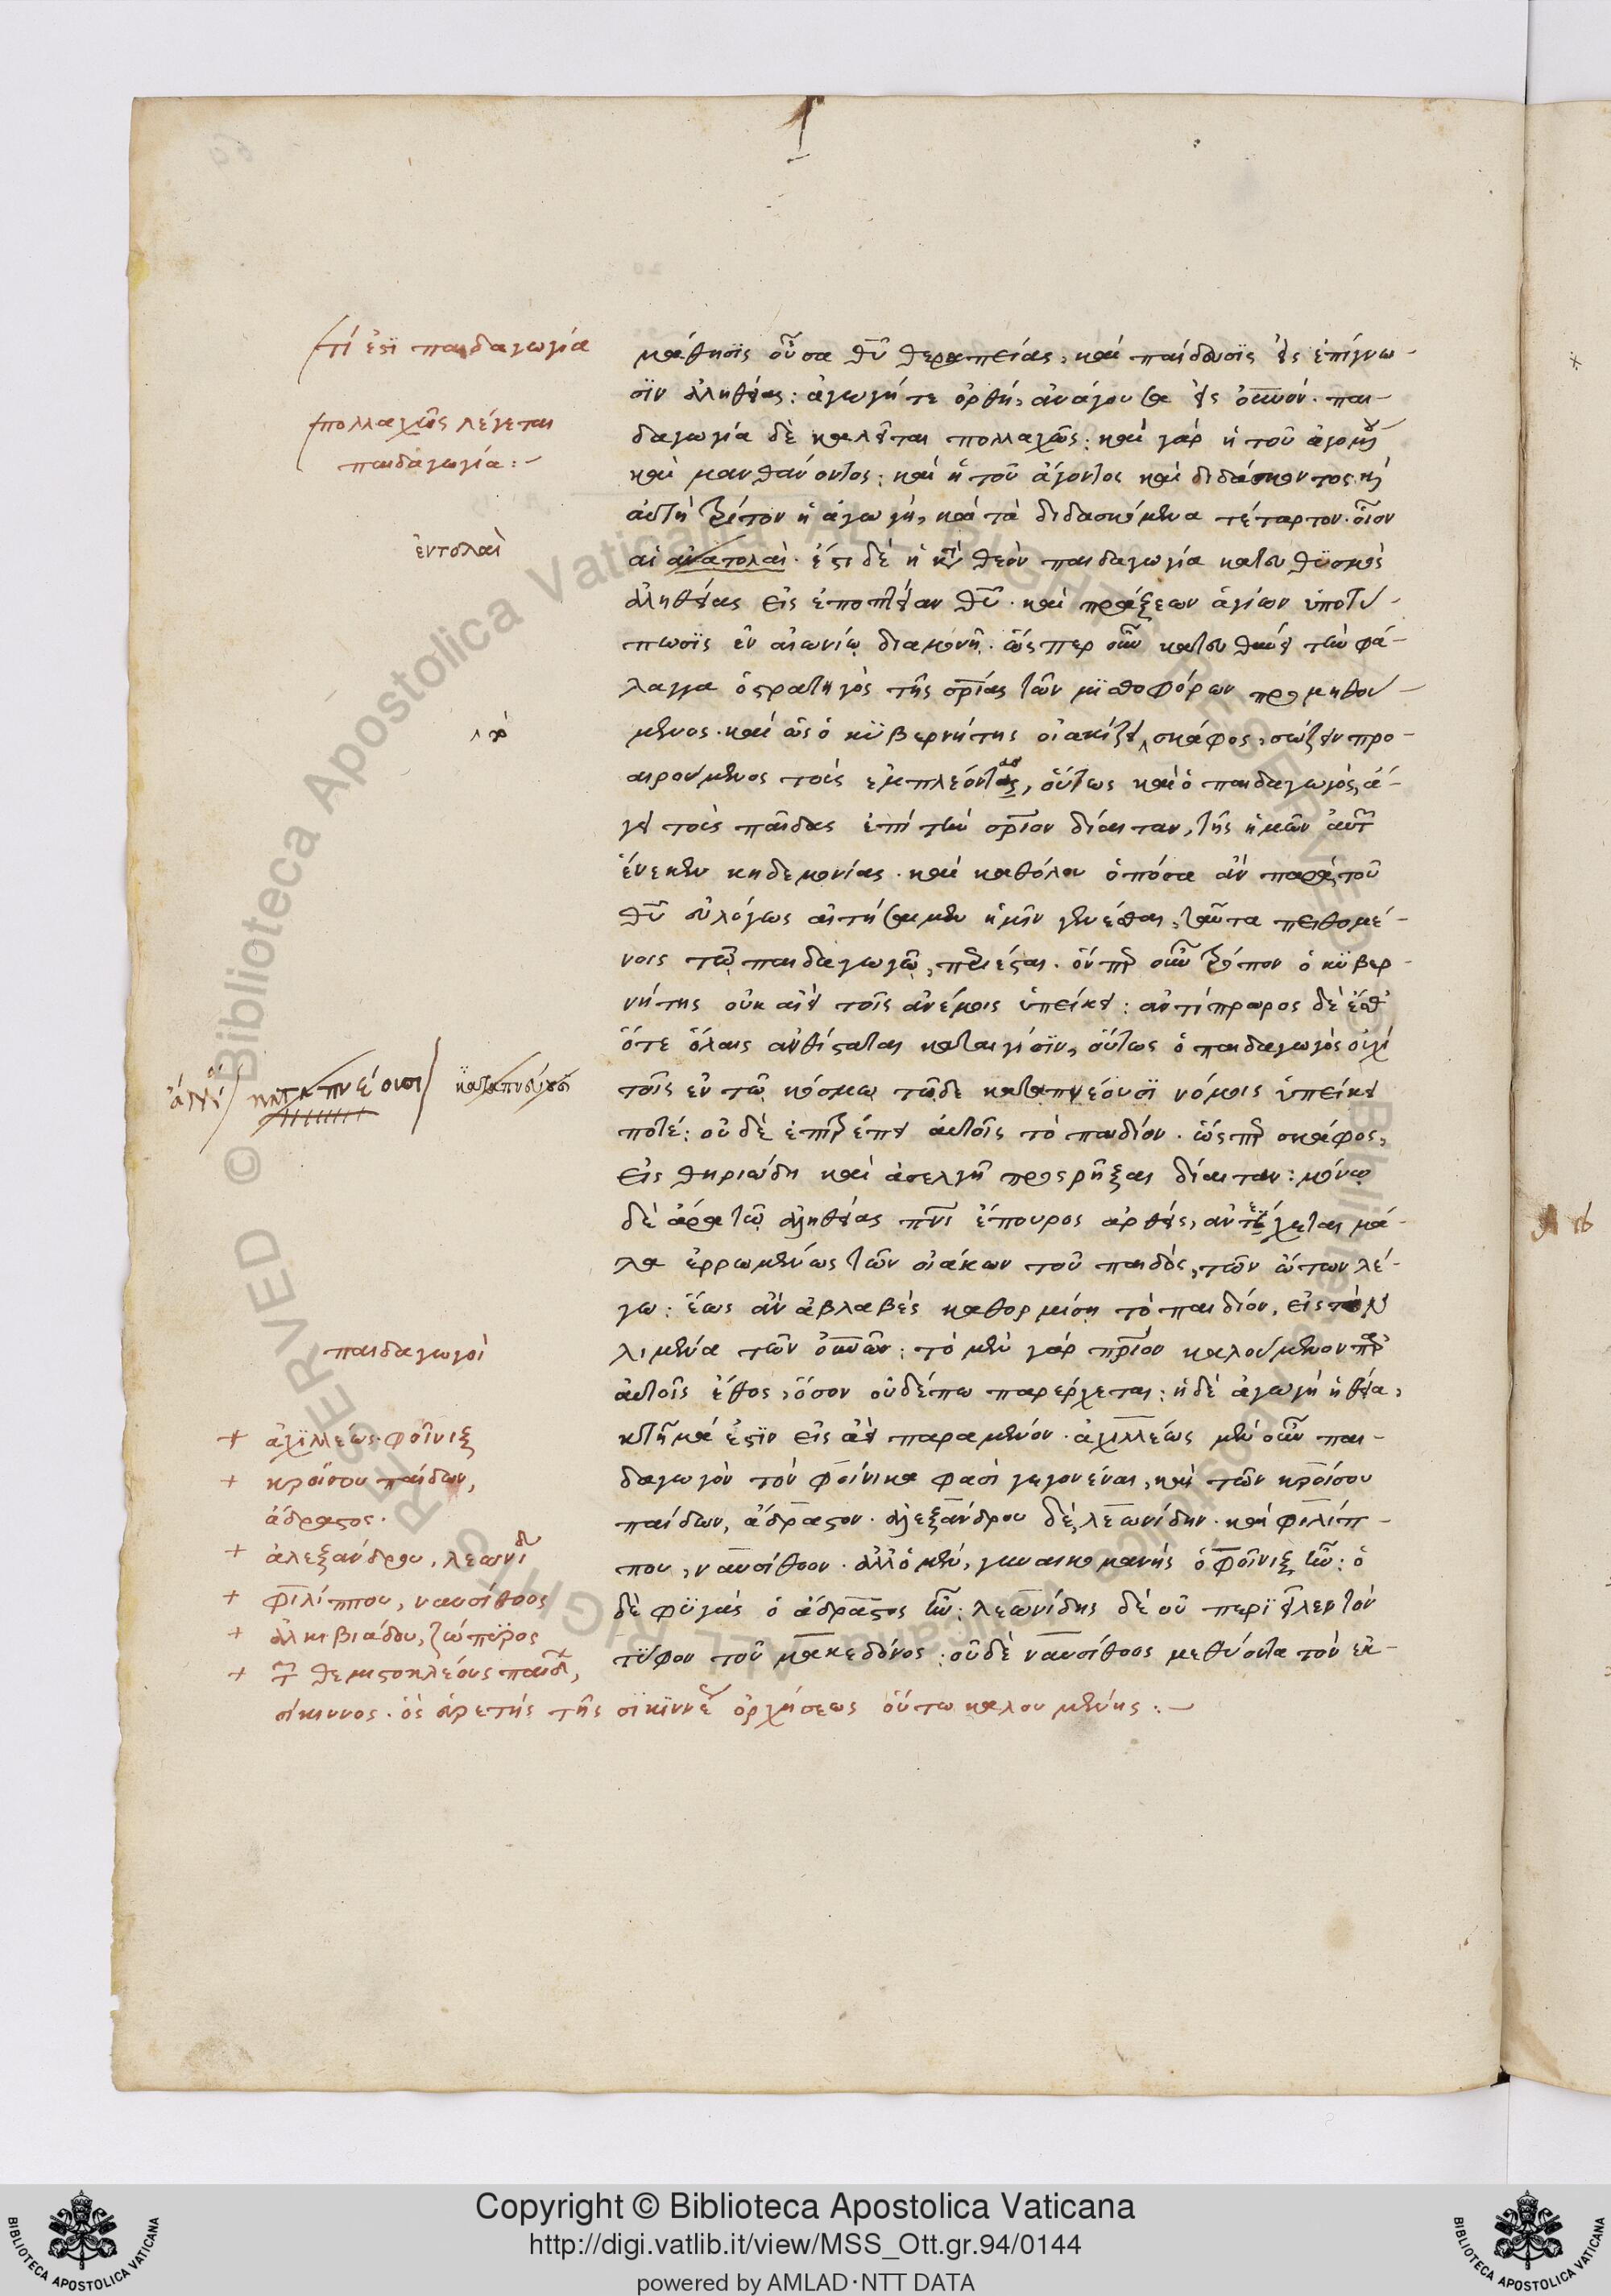 τί ἐστὶ παιδαγωγία
πολλαχῶς λέγεται
παιδαγωγία:-
ἐντολαὶ
ἀλλ'
καταπνέουσι
παιδαγωγοὶ
+ ἀχιλλέως φοῖνιξ
+ κροίσου παίδων,
ἄδραστος.
+ ἀλεξάνδρου, λεωνίδης
+ φιλίππου, ναυσίθοος
+ ἀλκιβιάδου, ζώπυρος
+ τῶν θεμιστοκλέους παίδων,
σίκιννος. ὃς εὑρετὴς τῆς σικίννης ὀρχήσεως οὕτω καλουμένης:-
μάθησις οὖσα θυ θεραπείας, καὶ παίδευσις εἰς ἐπίγνω-
σιν ἀληθείας: ἀγωγή τε ὀρθὴ, ἀνάγουσα εἰς οὐνόν. παι-
δαγωγία δὲ καλεῖται πολλαχῶς: καὶ γὰρ ἡ τοῦ ἀγομένου
καὶ μανθάνοντος: καὶ ἡ τοῦ ἄγοντος καὶ διδάσκοντος καὶ
αὐτὴ τρίτον ἡ ἀγωγή, καὶ τὰ διδασκόμενα τέταρτον. οἷον
αἱ ἀνατολαὶ. ἔστι δὲ ἡ κατὰ θεὸν παιδαγωγία κατευθυσμὸς
ἀληθείας εἰς ἐποπτείαν θυ. καὶ πράξεων ἁγίων ὑποτύ-
πωσις ἐν αἰωνίῳ διαμονῇ. ὥσπερ οὖν κατευθύνει τὴν φά-
λαγγα ὁ στρατηγὸς τῆς σρίας τῶν μισθοφόρων προμηθού-
μενος. καὶ ὡς ὁ κυβερνήτης οἰακίζει σκάφος, σώζειν προ-
αιρούμενος τοὺς ἐμπλέοντας, οὕτως καὶ ὁ παιδαγωγὸς ἄ-
γει τοὺς παῖδας ἐπὶ τὴν σρίον δίαιταν, τῆς ἡμῶν αὐτῶν
ἕνεκεν κηδεμονίας. καὶ καθόλου ὁπόσα ἂν παρὰ τοῦ
θυ εὐλόγως αἰτήσωμεν ἡμῖν γενέσθαι, ταῦτα πειθομέ-
νοις τῷ παιδαγωγῷ, περιέσται. ὅνπερ οὖν τρόπον ὁ κυβερ-
νήτης οὐκ αἰεὶ τοῖς ἀνέμοις ὑπείκει: ἀντίπρωρος δὲ ἔσθ'
ὅτε ὅλαις ἀνθίσταται καταιγίσιν, οὕτως ὁ παιδαγωγὸς οὐχὶ
τοῖς ἐν τῷ κόσμῳ τῷδε καταπνέουσι νόμοις ὑπείκει
ποτέ: οὐδὲ ἐπιτρέπει αὐτοῖς τὸ παιδίον. ὥσπερ σκάφος,
εἰς θηριώδη καὶ ἀσελγῆ προσρῆξαι δίαιταν: μόνῳ
δὲ ἄρα τῷ ἀληθείας πνι ἔπουρος ἀρθεὶς, ἀντέχεται μά-
λα ἐρρωμένως τῶν οἰάκων τοῦ παιδὸς, τῶν ὤτων λέ-
γω: ἕως ἂν ἀβλαβὲς καθορμίσῃ τὸ παιδίον, εἰς τὸν
λιμένα τῶν οὐνῶν: τὸ μὲν γὰρ πρίον καλούμενον παρ'
αὐτοῖς ἔθος, ὅσον οὐδέπω παρέρχεται: ἡ δὲ ἀγωγὴ ἡ θεία,
κτῆμά ἐστιν εἰς ἀεὶ παραμένον. ἀχιλλέως μὲν οὖν παι-
δαγωγὸν τὸν φοίνικα φασὶ γεγονέναι, καὶ τῶν κροίσου
παίδων, ἄδραστον. ἀλεξάνδρου δὲ, λεωνίδην. καὶ φιλίπ-
που, ναυσίθοον. ἀλλ' ὁ μὲν, γυναικομανὴς ὁ φοῖνιξ ἦν: ὁ
δὲ φυγὰς ὁ ἄδραστος ἦν: λεωνίδης δὲ οὐ περιεῖλεν τὸν
τύφον τοῦ μακεδόνος: οὐδὲ ναυσίθοος μεθύοντα τὸν ἐκ-
Copyright © Biblioteca Apostolica Vaticana
http://digi.vatlib.it/view/MSS_Ott.gr.94/0144
powered by AMLAD·NTT DATA